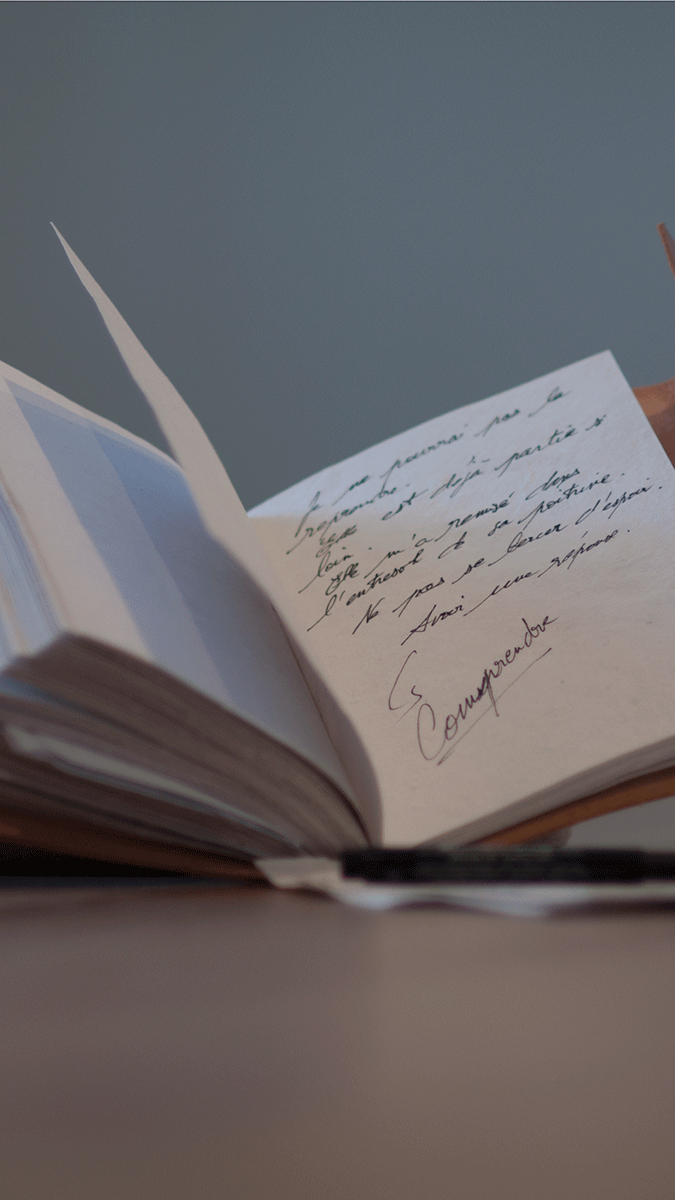 Je ne pourrai pas la
reprendre.
Elle est déjà partie si
loin.
Elle m'a remisé dans
l'entresol de sa poitrine.
Ne pas se bercer d'espoir.
Avoir une réponse.
Comprendre